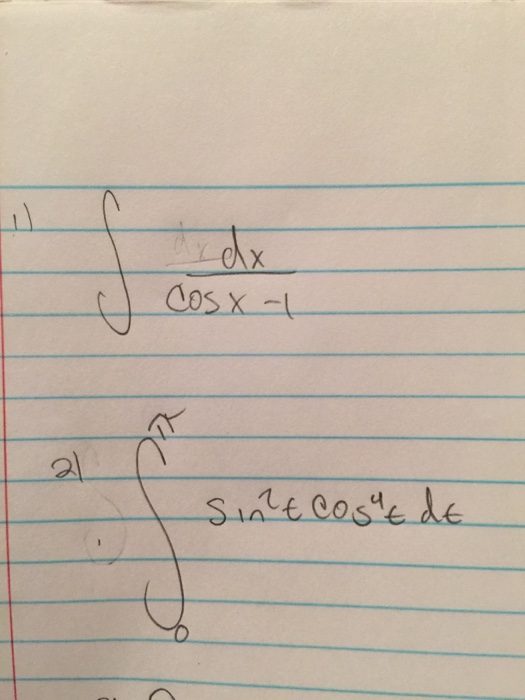 1) ∫ dx / (cos x - 1)
2) ∫₀^π sin²t cos⁴t dt